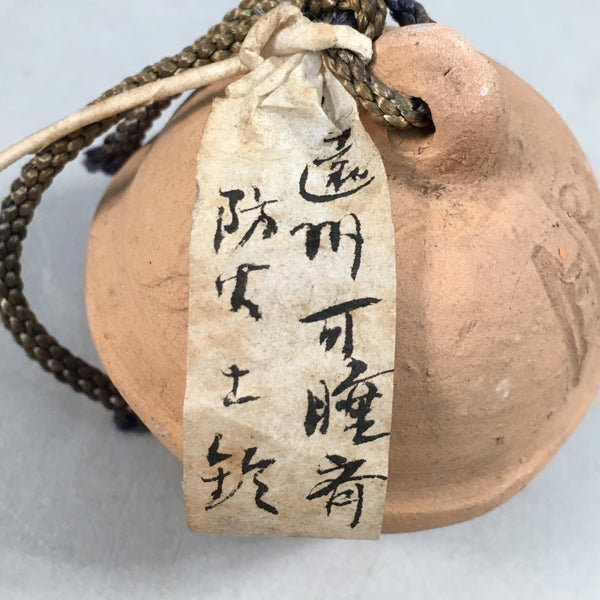 遠州可睡斎
防火土鈴